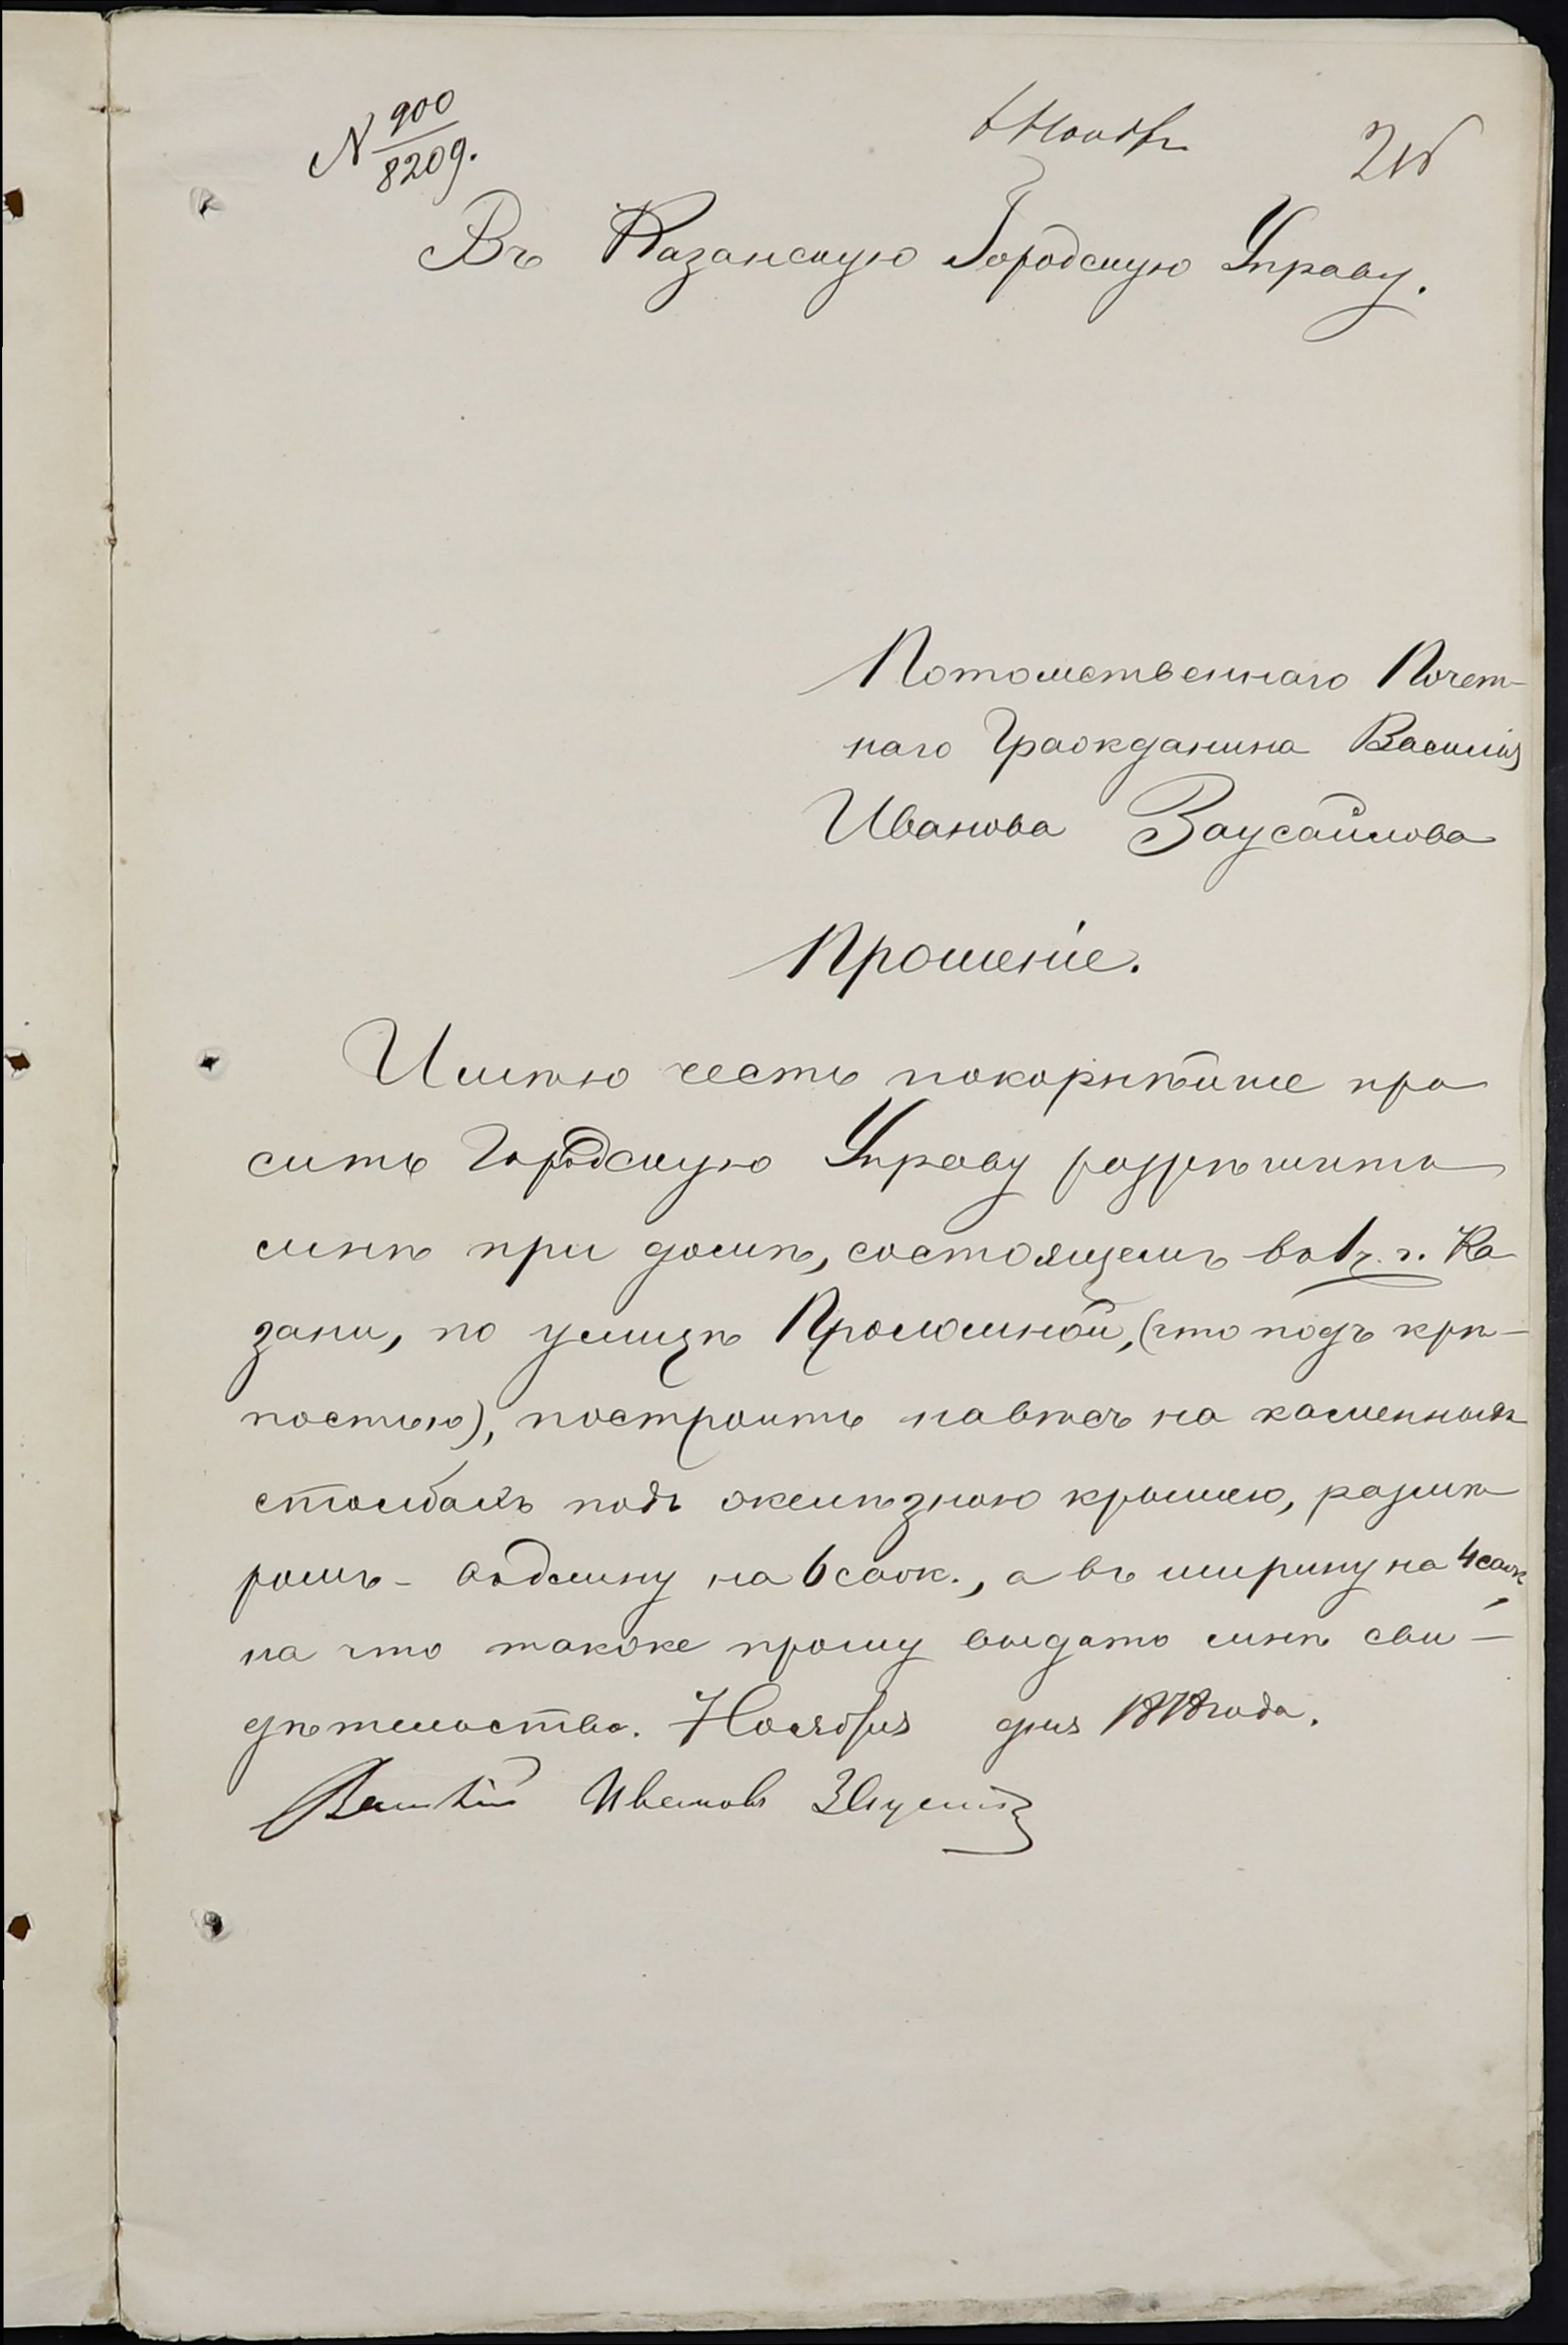 N 900/8209.
6 Ноября
Въ Казанскую Городскую Управу.
Потомственнаго Почет-
наго Гражданина Василія
Иванова Заусайлова
Прошеніе.
Имѣю честь покорнѣйше про
сить Городскую Управу разрѣшить
мнѣ при домѣ, состоящемъ во 1 ч. г. Ка
зани, по улицѣ Проломной, (что подъ крѣ-
постью), построить навѣсъ на каменныхъ
столбахъ подъ желѣзною крышею, размѣ
ромъ - въ длину на 6 саж., а въ ширину на 4 саж,
на что также прошу выдать мнѣ сви-
дѣтельство. Ноября дня 1878 года.
Василій Ивановъ Заусайловъ